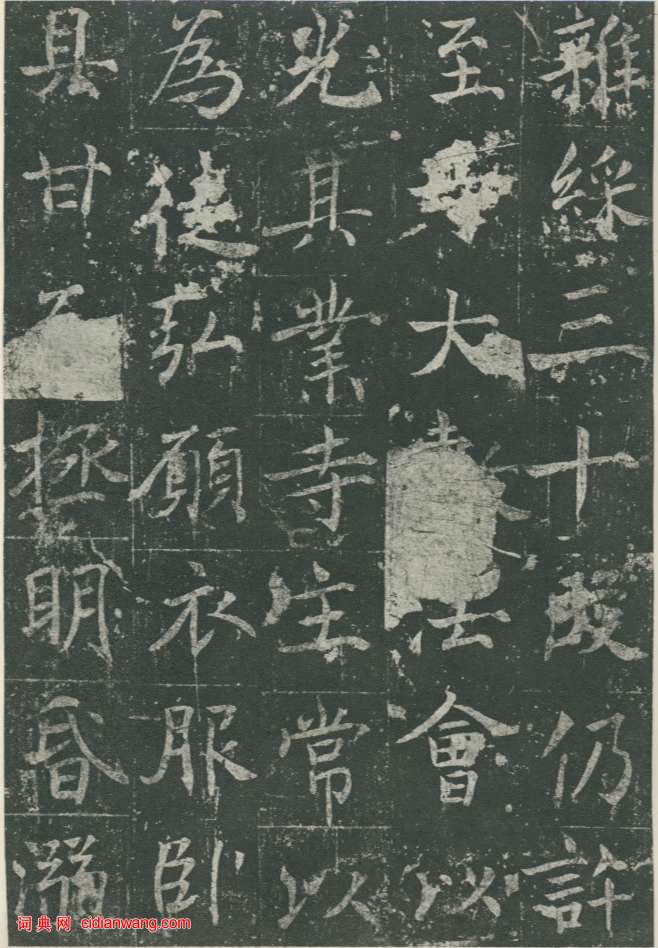 雜綵三十段仍許
至大會以
光其業寺主常以
為徒弘願衣服卧
具甘拯明昏溺
词典网 cidianwang.com